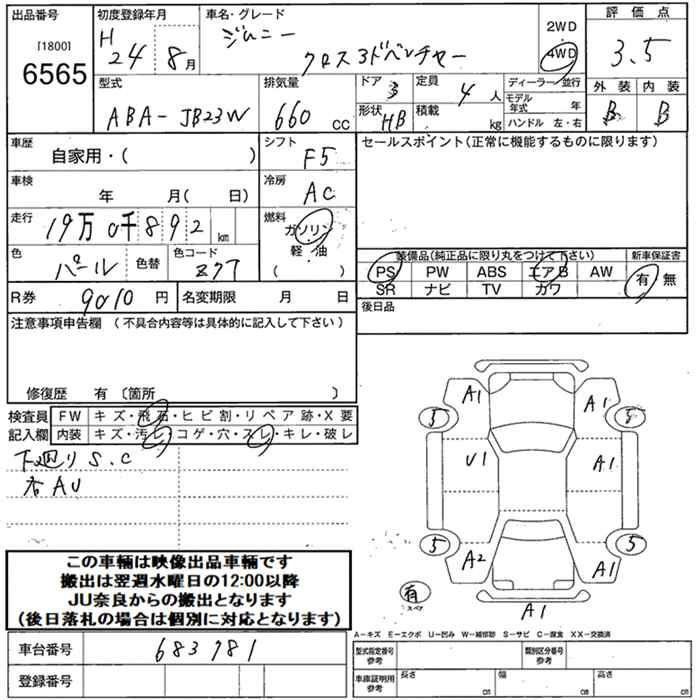 出品番号
[1800]
6565
初度登録年月
H 24 8 月
車名・グレード
ジムニー
クロスアドベンチャー
2WD
4WD
評価点
3.5
型式
ABA-JB23W
排気量
660 CC
ドア
3
形状
HB
定員
4 人
積載
kg
ディーラー・並行
モデル年式 年
ハンドル 左・右
外装
B
内装
B
車歴
自家用・( )
シフト
F5
セールスポイント(正常に機能するものに限ります)
車検
年 月( 日)
冷房
AC
走行
19万0千892 km
燃料
ガソリン
軽・油
( )
色
パール
色替
色コード
Z7T
装備品(純正品に限り丸をつけて下さい)
新車保証書
PS PW ABS エアB AW
有・無
SR ナビ TV カワ
R券
9010 円
名変期限 月 日
後日品
注意事項申告欄 (不具合内容等は具体的に記入して下さい)
修復歴 有 〔箇所 〕
検査員
記入欄
FW キズ・飛石・ヒビ割・リペア跡・X要
内装 キズ・汚レ・コゲ・穴・スレ・キレ・破レ
下廻り S.C
杏 AU
A1
A1
5
5
U1
A1
5
5
A2
A1
有
スペア
A1
この車輛は映像出品車輛です
搬出は翌週水曜日の12:00以降
JU奈良からの搬出となります
(後日落札の場合は個別に対応となります)
A-キズ E-エクボ U-凹み W-補修跡 S-サビ C-腐食 XX-交換済
車台番号
683781
登録番号
型式指定番号
参考
類別区分番号
参考
車庫証明用
参考
長さ cm
幅 cm
高さ cm